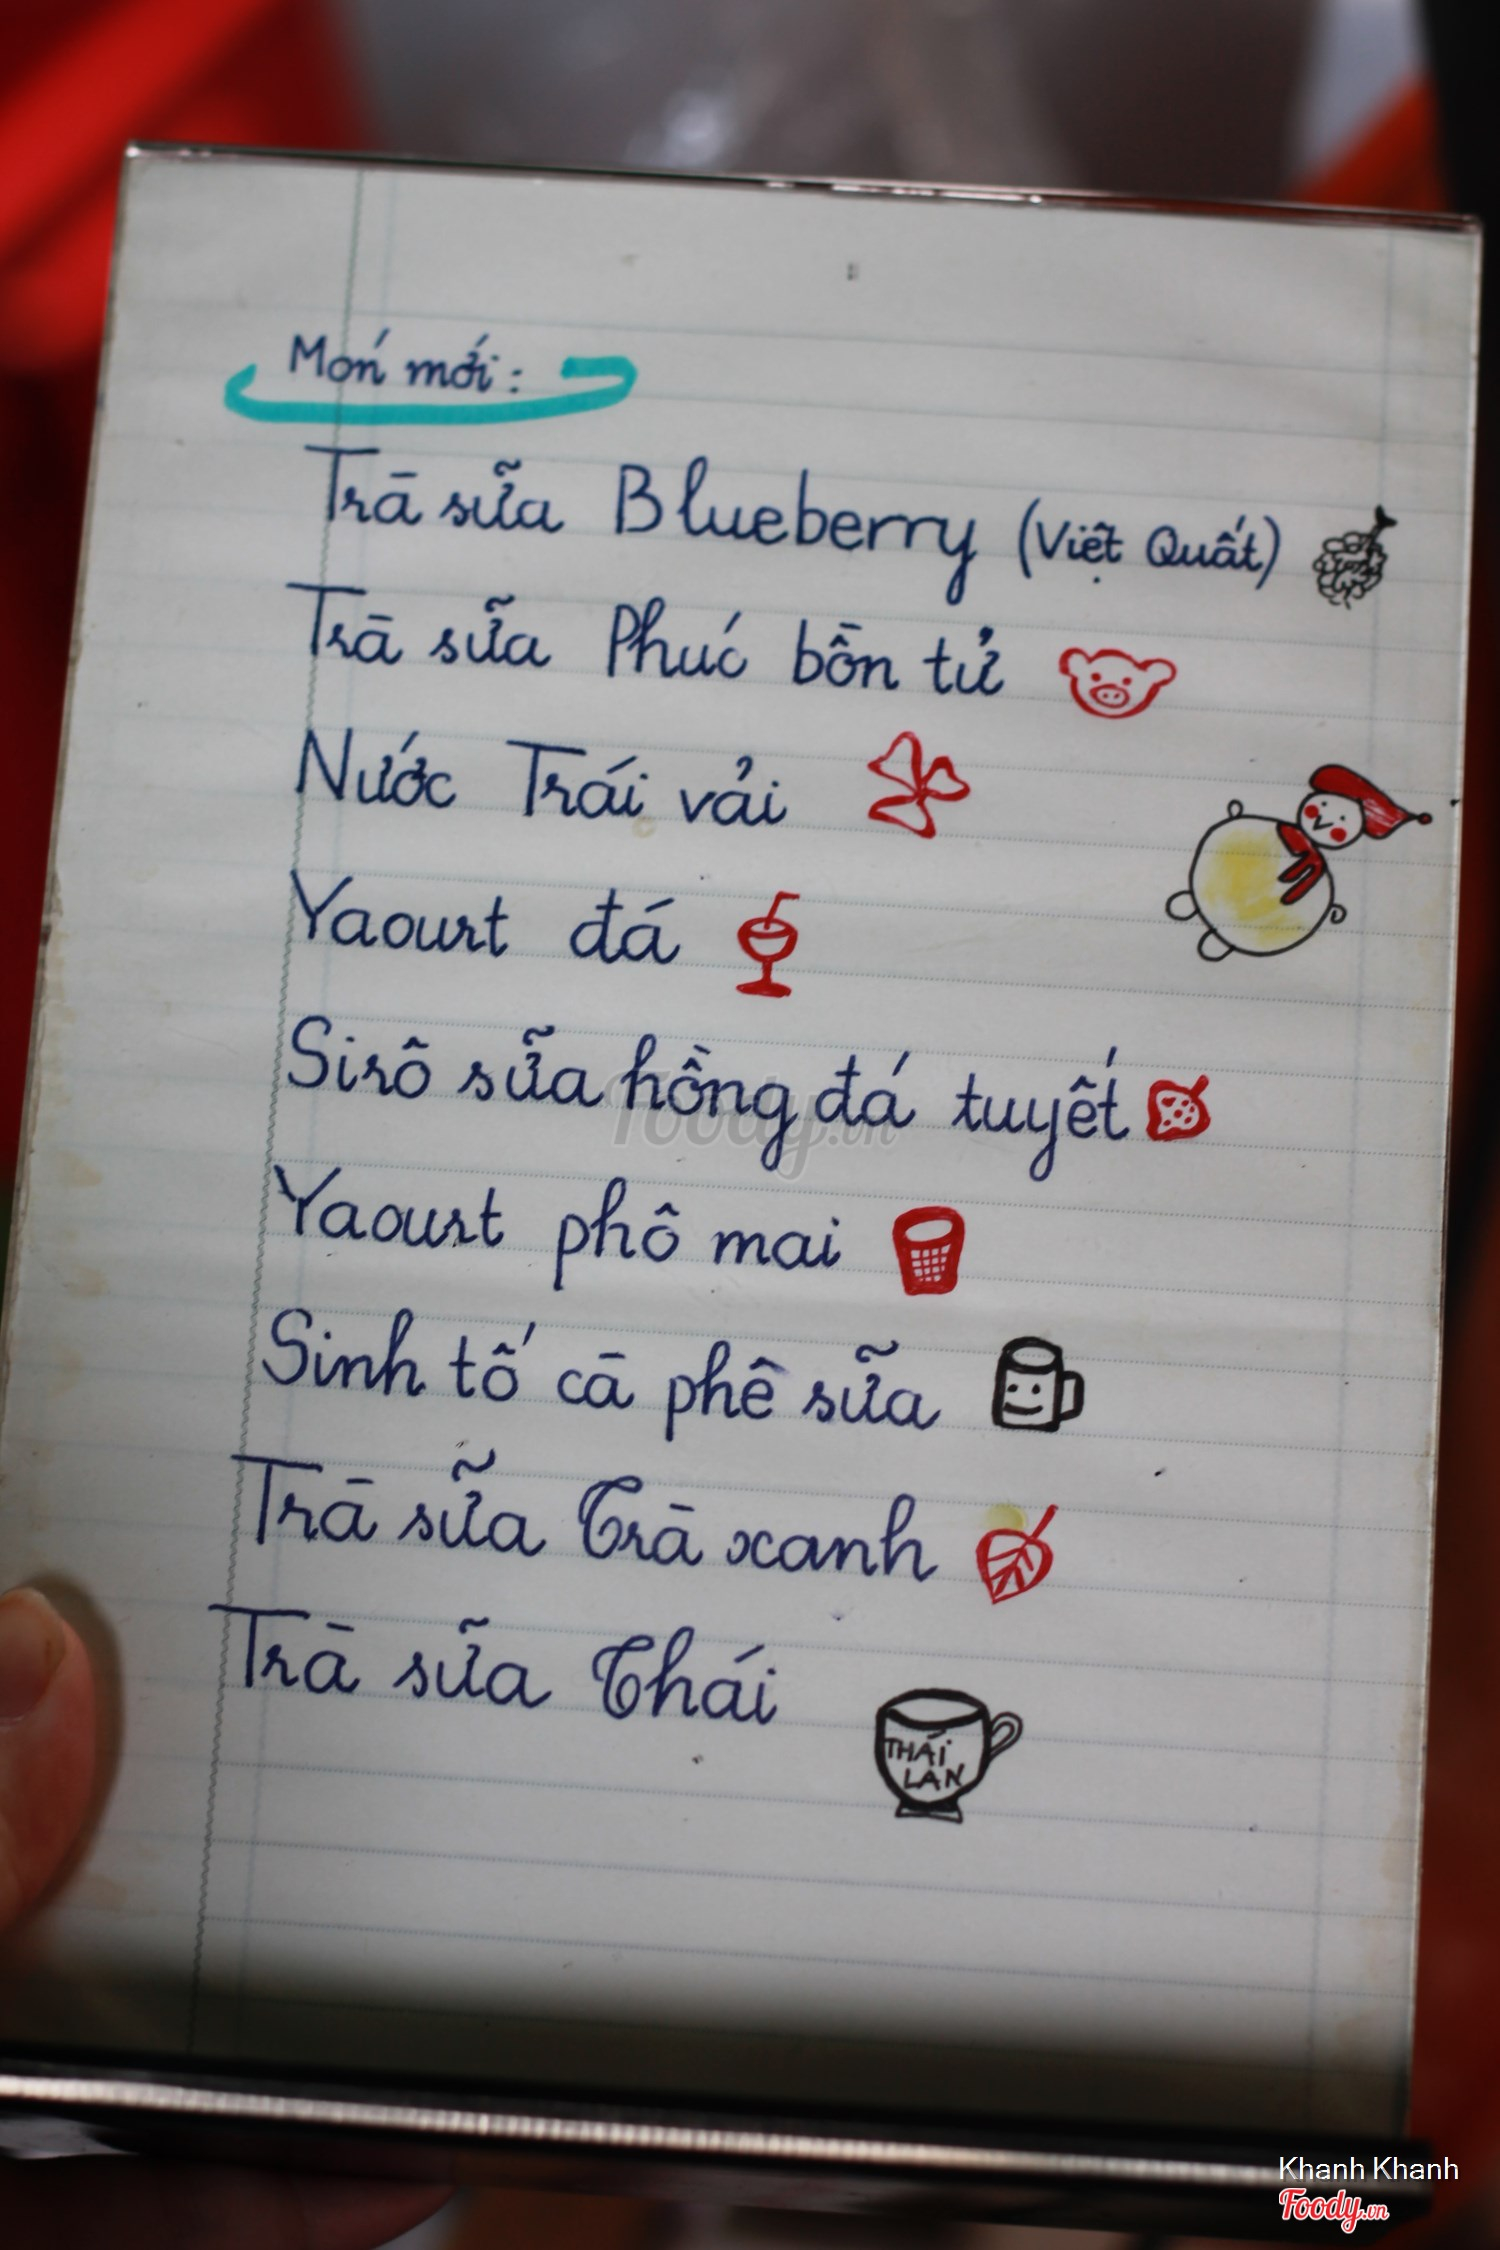 Món mới:
Trà sữa Blueberry (Việt Quất)
Trà sữa Phúc bồn tử
Nước Trái vải
Yaourt đá
Sirô sữa hồng đá tuyết
Yaourt phô mai
Sinh tố cà phê sữa
Trà sữa Trà xanh
Trà sữa Thái
THÁI
LAN
Foody.vn
Khanh Khanh
Foody.vn